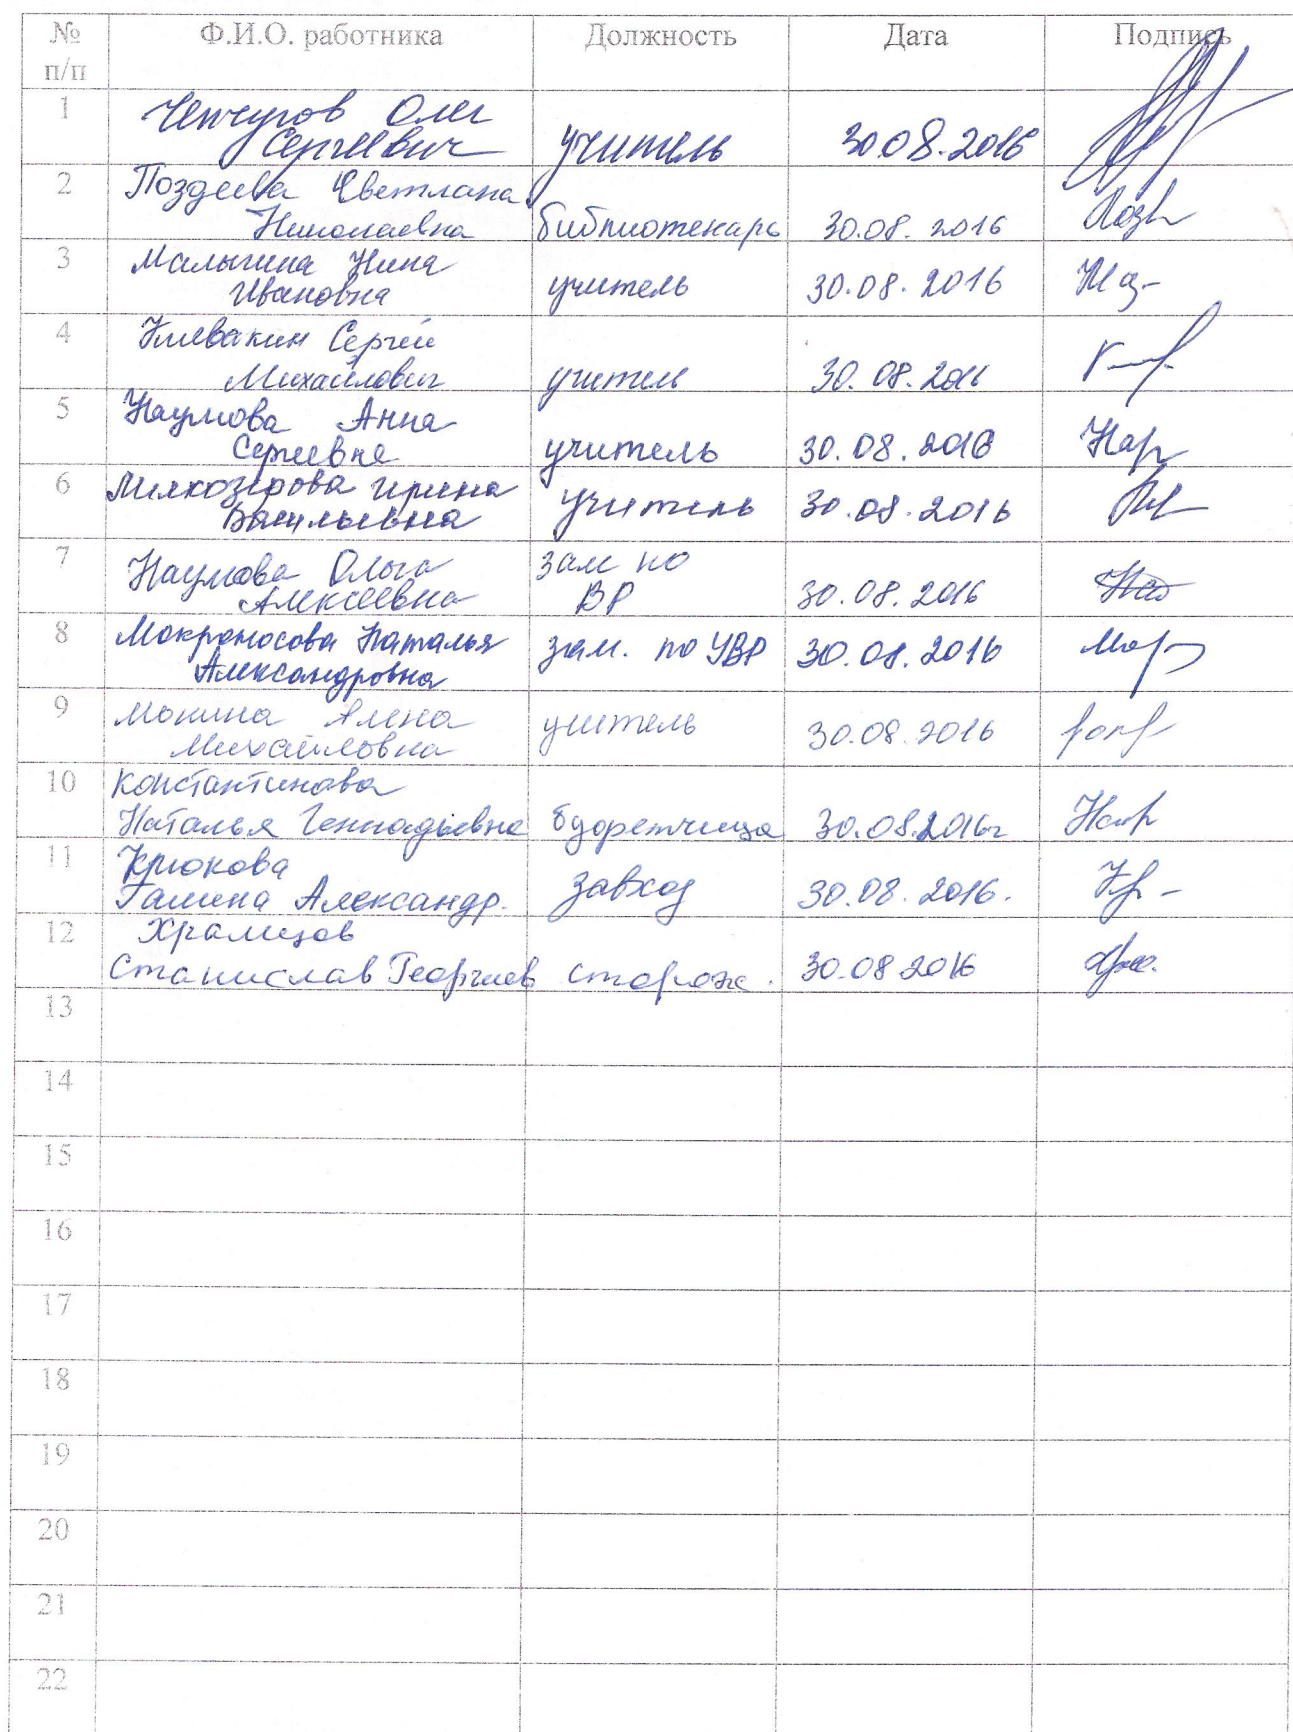 № п/п Ф.И.О. работника Должность Дата Подпись
1 Ченчугов Олег
Сергеевич учитель 30.08.2016
2 Поздеева Светлана
Николаевна библиотекарь 30.08.2016
3 Малыгина Нина
Ивановна учитель 30.08.2016
4 Клевакин Сергей
Михайлович учитель 30.08.2016
5 Наумова Анна
Сергеевна учитель 30.08.2016
6 Мелкозёрова Ирина
Васильевна учитель 30.08.2016
7 Наумова Ольга зам по
Алексеевна ВР 30.08.2016
8 Мокроносова Наталья зам. по УВР 30.08.2016
Александровна
9 Мокина Алена
Михайловна учитель 30.08.2016
10 Константинова
Наталья Геннадьевна 30.08.2016г
11 Крюкова
Галина Александр. завхоз 30.08.2016.
12 Храмцов
Станислав Георгиев сторож. 30.08 2016
13
14
15
16
17
18
19
20
21
22